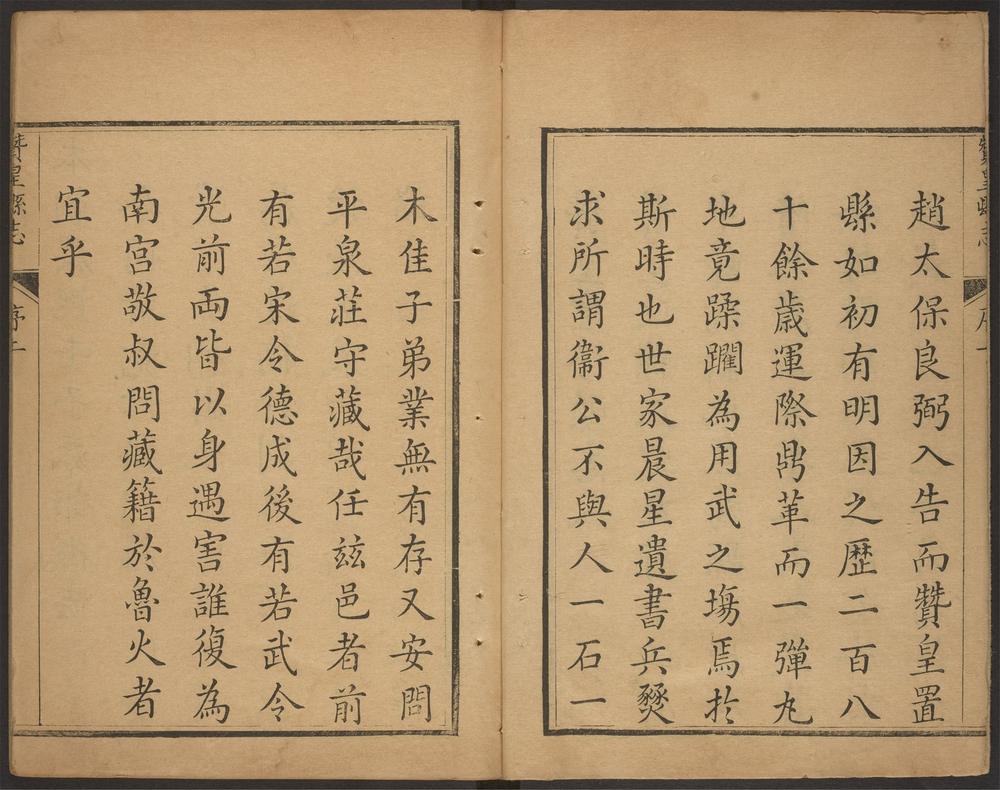 贊皇縣志
序一
趙太保良弼入告而贊皇置
縣如初有明因之歷二百八
十餘歲運際鼎革而一彈丸
地竟蹂躪為用武之塲焉於
斯時也世家晨星遺書兵燹
求所謂衞公不與人一石一
木佳子弟業無有存又安問
平泉莊守藏哉任玆邑者前
有若宋令德成後有若武令
光前両皆以身遇害誰復為
南宮敬叔問藏籍於魯火者
宜乎
贊皇縣志
序二